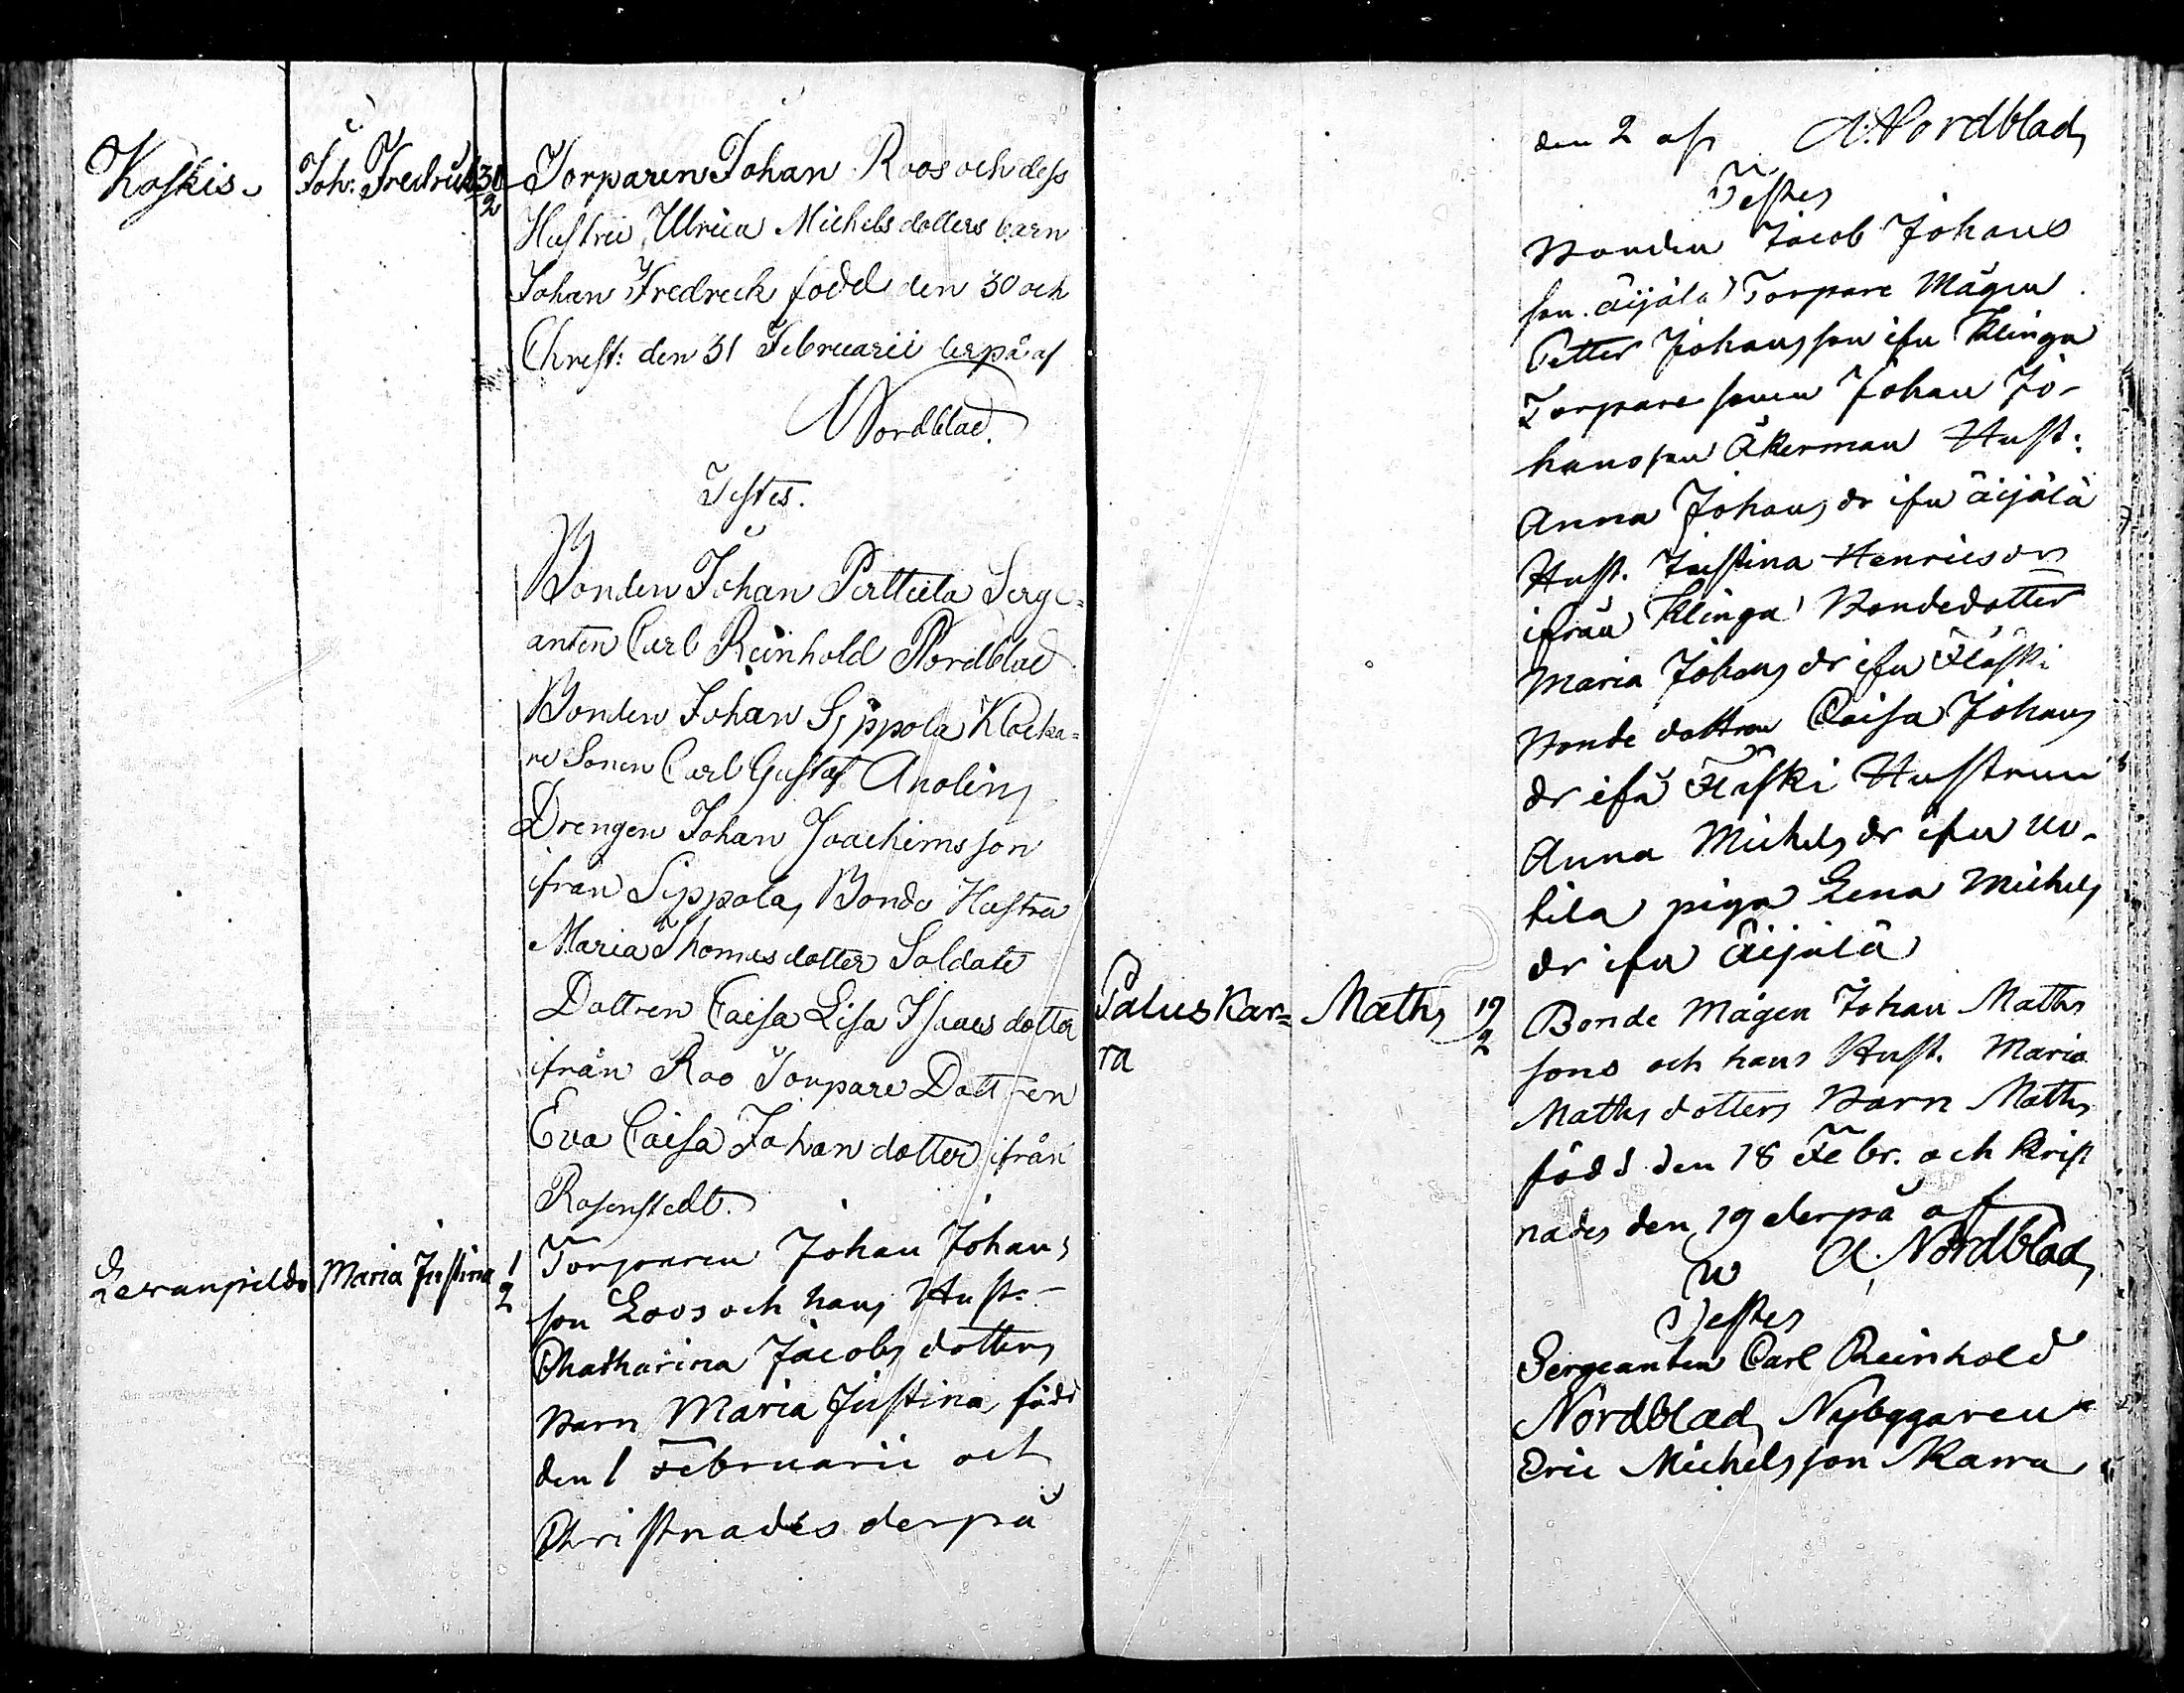 Koskis.
Joh: Fredrick 30/2
Torparen Johan Roos och dess
Hustru Ulrica Michelsdotters barn
Johan Fredreck född den 30 och
Christ: den 31 Februarii derpå af
A Nordblad.
Testes.
Bonden Johan Perttula Serge=
anten Carl Reinhold Nordblad
Bonden Johan Sippola Klocka=
re Sonen Carl Gustaf Anolin
Drengen Johan Joachimsson
ifrån Sippola, Bonde Hustru
Maria Thomasdotter Soldate
Dottren Caisa Lisa Isaacs dotter
ifrån Roo Torpare Dottren
Eva Caisa Johan dotter ifrån
Rosenstedt.
Maria Justina 1/2
Torparen Johan Johans
son Loos och hans Hust:
Chatharina Jacobs dotters
Barn Maria Justina född
den 1 Februarii och
Christnades derpå
den 2 af A. Nordblad
Testes
Bonden Jacob Johans
son äijälä Torpare Mågen
Petter Johansson ifrn Klinga
Torpare sonen Johan Jo-
hansson Åkerman Hust:
Anna Johans dr ifrn äijälä
Hust. Justina Henricsdr
ifrån Klinga Bondedotter
Maria Johans dr ifrn Fläski
Bonde dottren Caisa Johans
dr ifrn Fläski Hustrun
Anna Michels dr ifrn Uu-
tila pigan Lena Michels
dr ifrn Äijälä
Paluskar=
ra
Maths 19/2
Bonde Mågen Johan Maths
sons och hans Hust. Maria
Mathsdotters Barn Maths
född den 18 Febr. och Krist
nades den 19 derpå af
A. Nordblad
Testes
Sergeanten Carl Reinhold
Nordblad, Nybyggaren
Eric Michelsson Karra